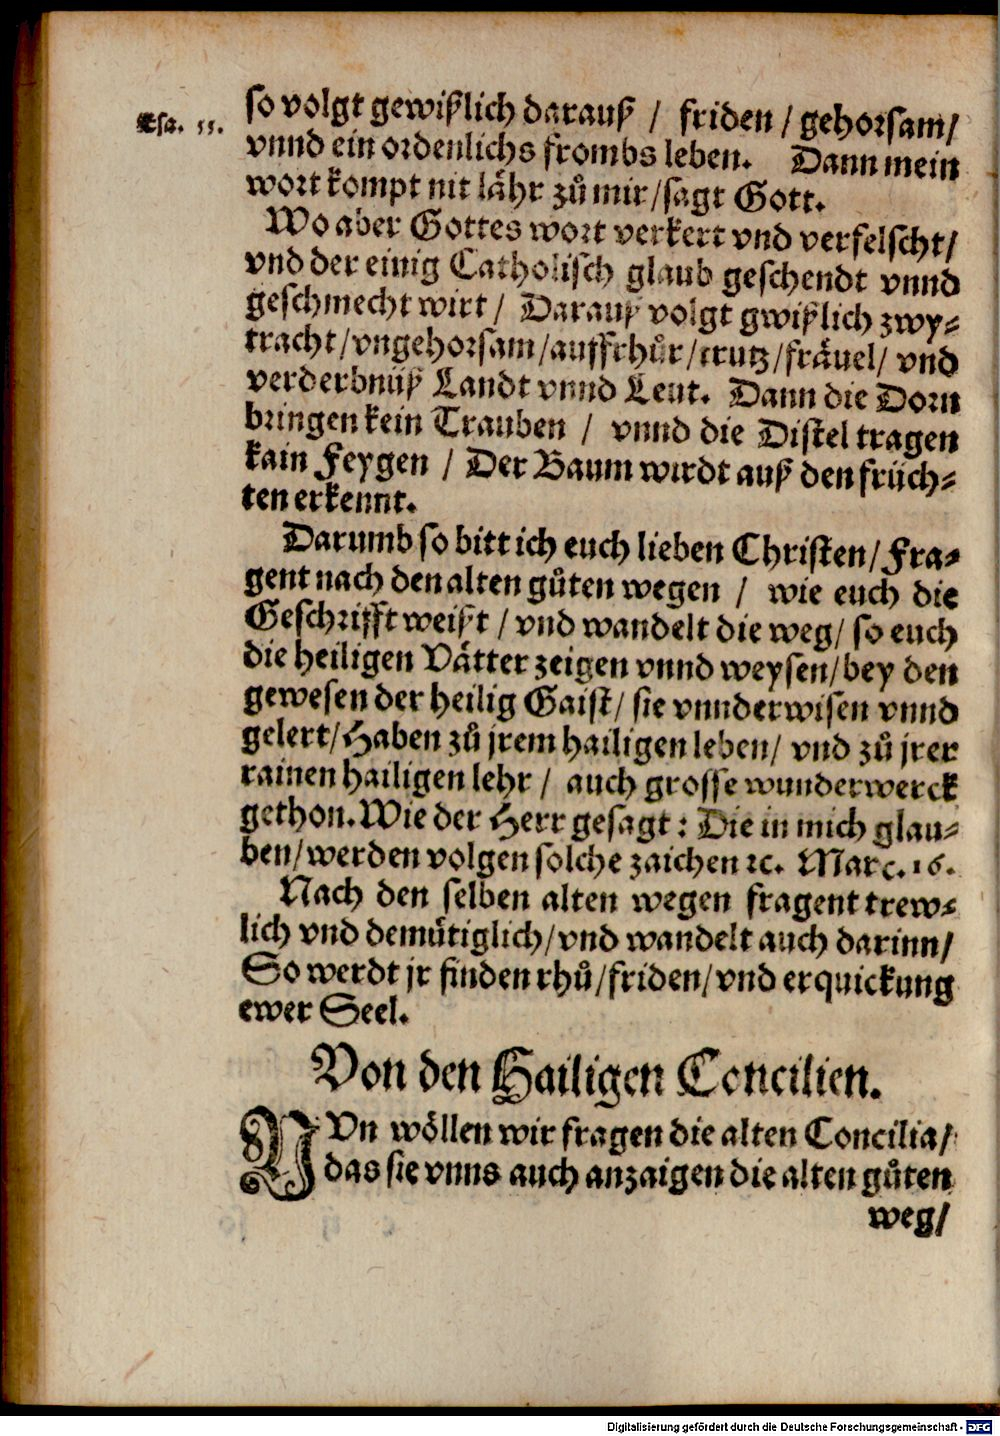 Esa. 55.
so volgt gewißlich darauß / friden / gehorsam/
vnnd ein ordenlichs frombs leben. Dann mein
wort kompt nit lähr zů mir/sagt Gott.
Wo aber Gottes wort verkert vnd verfelscht/
vnd der einig Catholisch glaub geschendt vnnd
geschmecht wirt / Darauß volgt gwißlich zwy-
tracht/vngehorsam/auffrhůr/trutz/fräuel/ vnd
verderbnüß Landt vnnd Leut. Dann die Dorn
bringen kein Trauben / vnnd die Distel tragen
kain Feygen / Der Baum wirdt auß den früch-
ten erkennt.
Darumb so bitt ich euch lieben Christen/Fra-
gent nach den alten gůten wegen / wie euch die
Geschrifft weißt / vnd wandelt die weg/ so euch
die heiligen Vätter zeigen vnnd weysen/bey den
gewesen der heilig Gaist/ sie vnnderwisen vnnd
gelert/Haben zů jrem hailigen leben/ vnd zů jrer
rainen hailigen lehr / auch grosse wunderwerck
gethon. Wie der Herr gesagt : Die in mich glau-
ben/werden volgen solche zaichen ꝛc. Marc. 16.
Nach den selben alten wegen fragent trew-
lich vnd demütiglich/vnd wandelt auch darinn/
So werdt jr finden rhů/friden/vnd erquickung
ewer Seel.
Von den Hailigen Concilien.
NVn wöllen wir fragen die alten Concilia/
das sie vnns auch anzaigen die alten gůten
weg/
Digitalisierung gefördert durch die Deutsche Forschungsgemeinschaft - DFG